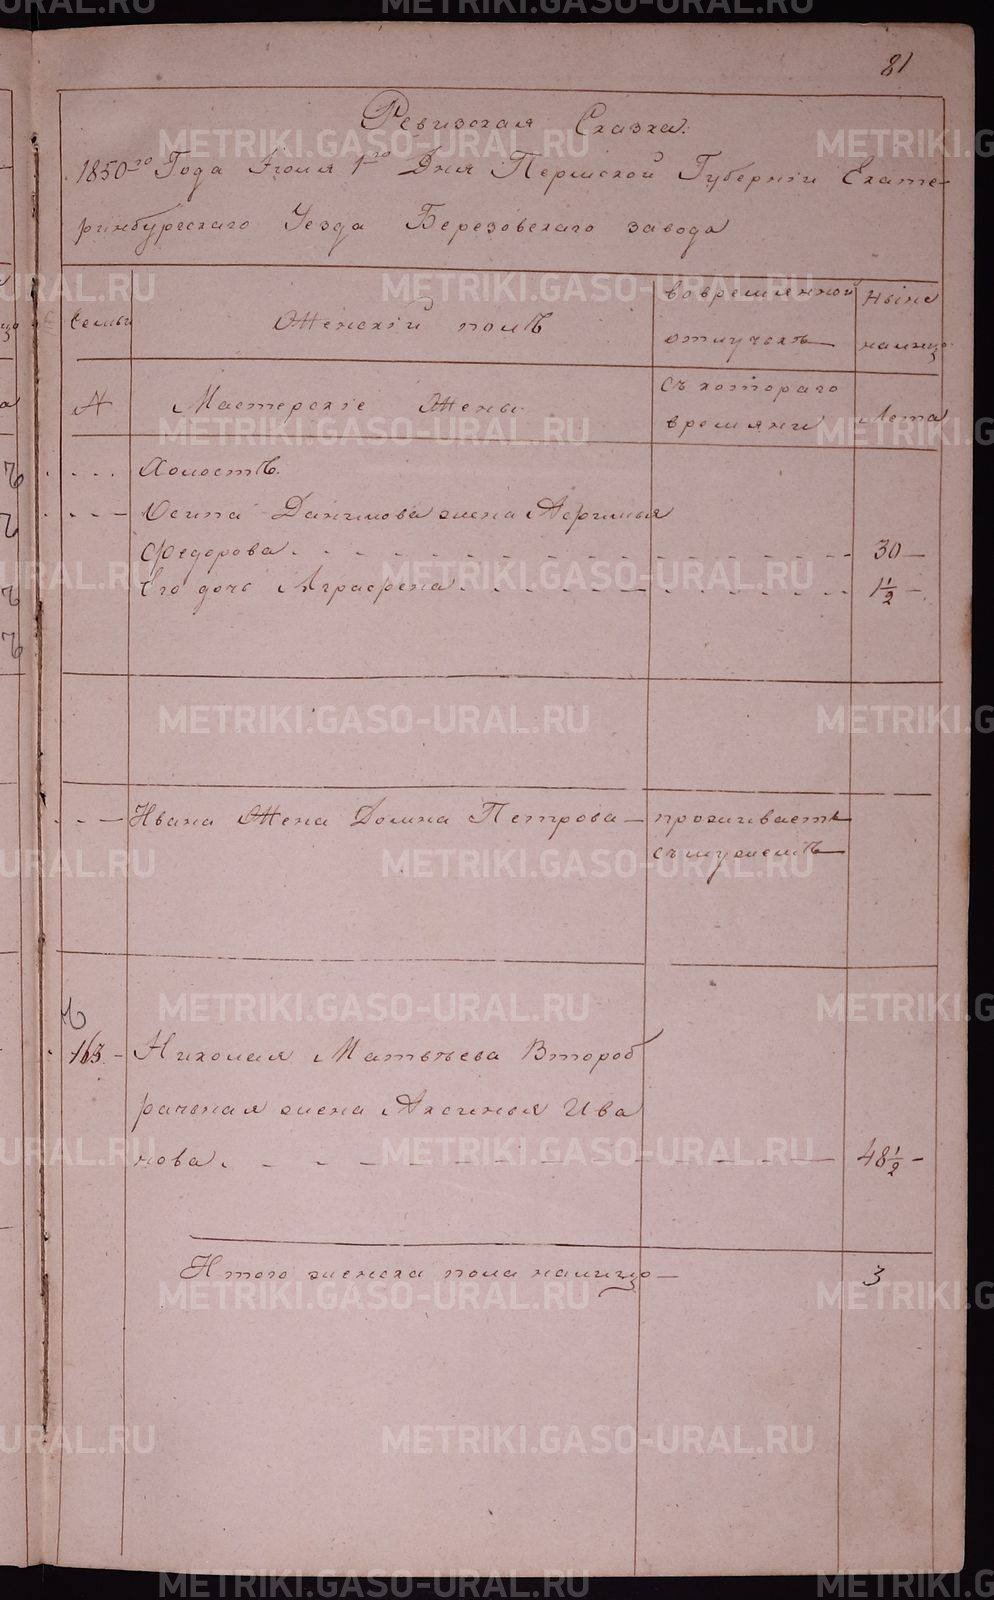 81
Ревизская Сказка.
1850го Года Іюля 1го Дня Пермской Губерніи Екате-
ринбургскаго Уезда Березовскаго завода
Семьи
Женскій полъ
во временной
отлучкѣ
Ныне
налицо
№
Мастерскіе Жены
Съ котораго
времяни
Лета
Холостъ.
Осипа Данилова жена Афимья
Федорова. 30
Его дочь Аграфена. 1 1/2
Ивана Жена Домна Петрова
проживаетъ
съ мужемъ
163
Николая Матвѣева Второб
рачьная жена Аксинья Ива
нова. 48 1/2
Итого женска пола налицо 3
METRIKI.GASO-URAL.RU